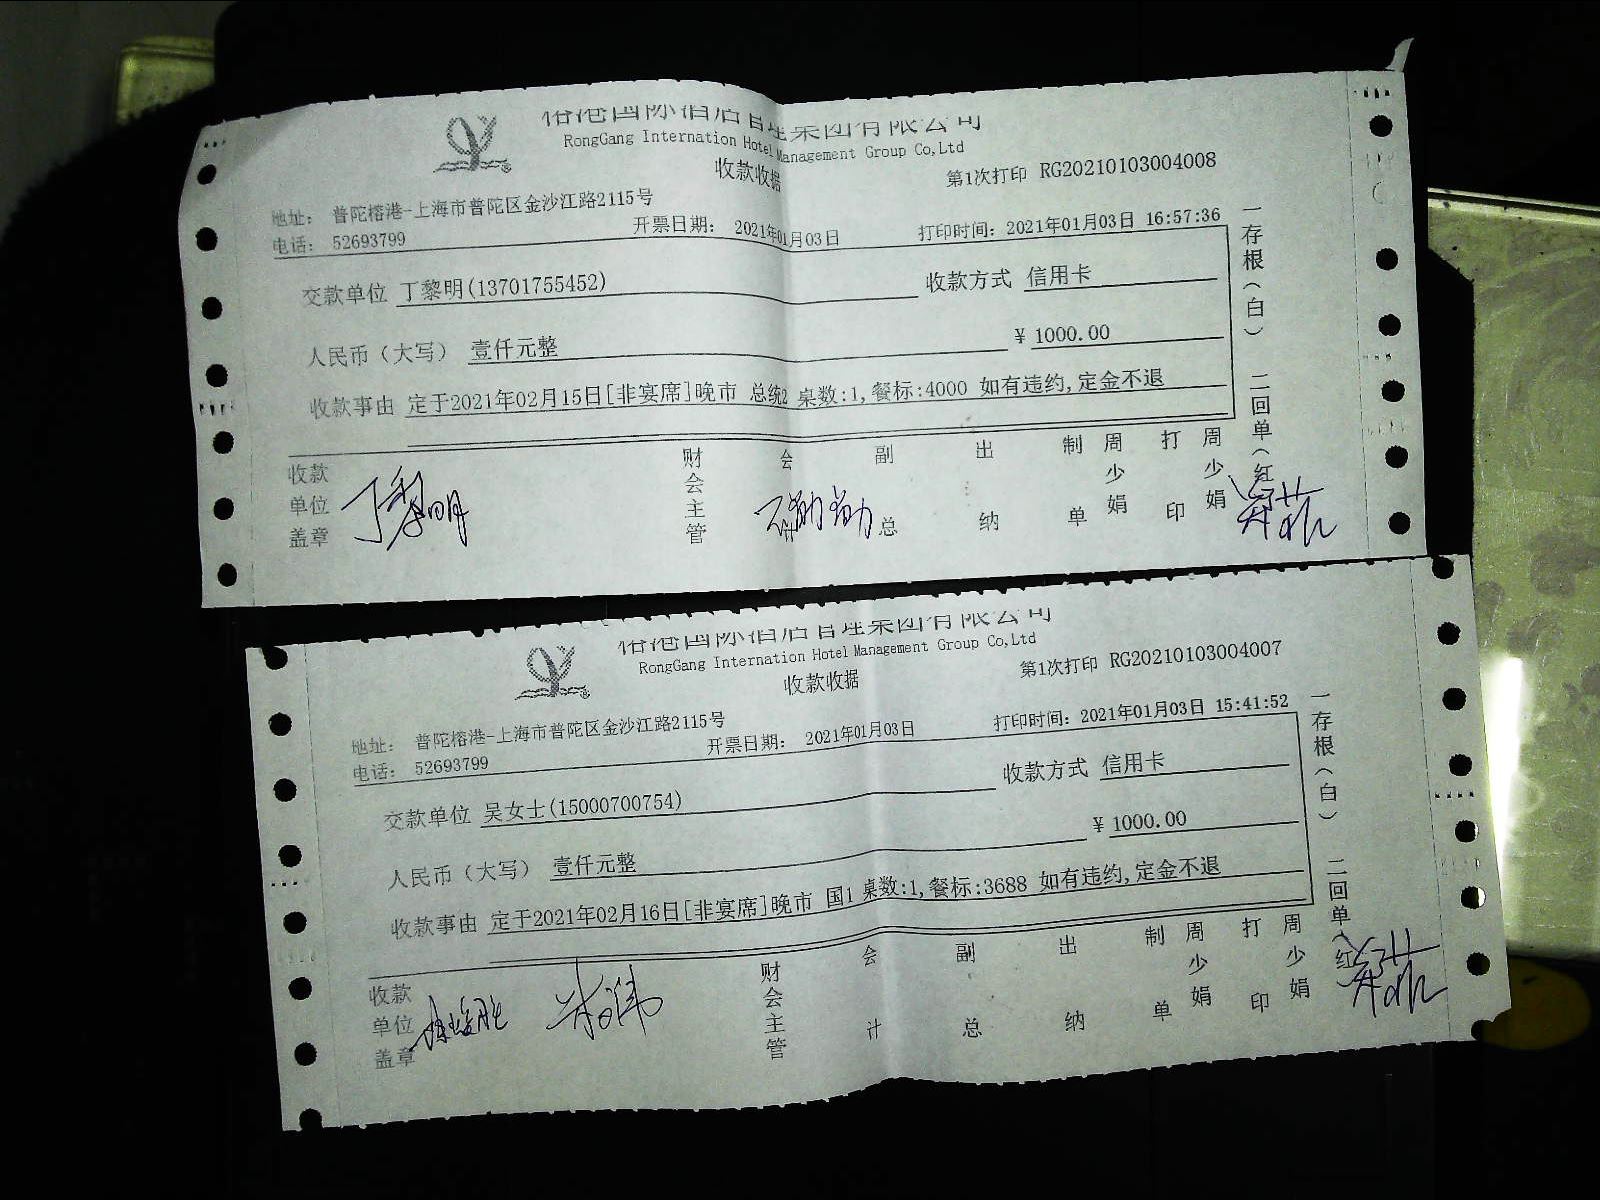 榕港国际酒店管理集团有限公司
RongGang Internation Hotel Management Group Co,Ltd
收款收据
第1次打印 RG20210103004008
地址： 普陀榕港-上海市普陀区金沙江路2115号
电话： 52693799
开票日期： 2021年01月03日
打印时间：2021年01月03日 16:57:36
交款单位 丁黎明(13701755452)
收款方式 信用卡
人民币（大写） 壹仟元整
¥ 1000.00
收款事由 定于2021年02月15日[非宴席]晚市 总统2 桌数:1,餐标:4000 如有违约,定金不退
一存根（白） 二回单（红
收款单位盖章
丁黎明
财会主管
会
副总
出纳
制单
周少娟
打印
周少娟
榕港国际酒店管理集团有限公司
RongGang Internation Hotel Management Group Co,Ltd
收款收据
第1次打印 RG20210103004007
地址： 普陀榕港-上海市普陀区金沙江路2115号
电话： 52693799
开票日期： 2021年01月03日
打印时间：2021年01月03日 15:41:52
交款单位 吴女士(15000700754)
收款方式 信用卡
人民币（大写） 壹仟元整
¥ 1000.00
收款事由 定于2021年02月16日[非宴席]晚市 国1 桌数:1,餐标:3688 如有违约,定金不退
一存根（白） 二回单（红
收款单位盖章
财会主管
会计
副总
出纳
制单
周少娟
打印
周少娟